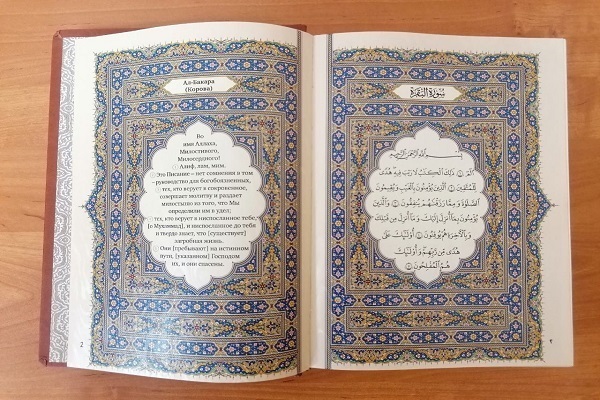 Ал-Бакара
(Корова)
Во
имя Аллаха,
Милостивого,
Милосердного!
Алиф, лам, мим.
Это Писание – нет сомнения в том
– руководство для богобоязненных,
тех, кто верует в сокровенное,
совершает молитву и раздает
милостыню из того, что Мы
определили им в удел;
тех, кто верует в ниспосланное тебе,
[о Мухаммад], и ниспосланное до тебя
и твердо знает, что [существует]
загробная жизнь.
Они [пребывают] на истинном
пути, [указанном] Господом
их, и они спасены.
2
سُورَةُ الْبَقَرَةِ
بِسْمِ اللَّهِ الرَّحْمَٰنِ الرَّحِيمِ
الٓمٓ ۝١ ذَٰلِكَ ٱلْكِتَٰبُ لَا رَيْبَ فِيهِ هُدًى
لِّلْمُتَّقِينَ ۝٢ ٱلَّذِينَ يُؤْمِنُونَ بِٱلْغَيْبِ وَيُقِيمُونَ
ٱلصَّلَوٰةَ وَمِمَّا رَزَقْنَٰهُمْ يُنفِقُونَ ۝٣ وَٱلَّذِينَ
يُؤْمِنُونَ بِمَآ أُنزِلَ إِلَيْكَ وَمَآ أُنزِلَ مِن قَبْلِكَ
وَبِٱلْءَاخِرَةِ هُمْ يُوقِنُونَ ۝٤ أُو۟لَٰٓئِكَ عَلَىٰ
هُدًى مِّن رَّبِّهِمْ وَأُو۟لَٰٓئِكَ
هُمُ ٱلْمُفْلِحُونَ ۝٥